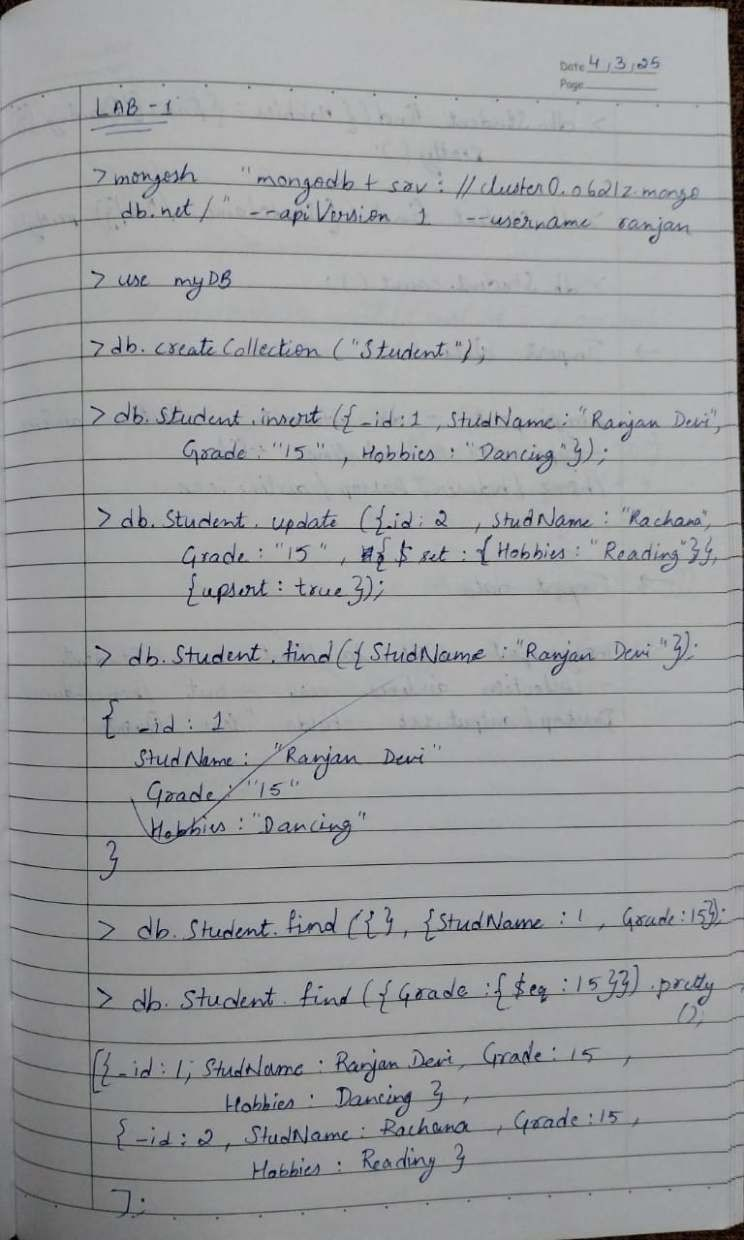 Date 4/3/25
Page
LAB - 1
> mongosh "mongodb + srv : // cluster0.o6212.mongo
db.net / " --apiVersion 1 --username ranjan
> use myDB
> db.createCollection ("Student");
> db.Student.insert ({_id:1, StudName : "Ranjan Devi",
Grade : "15", Hobbies : "Dancing"});
> db.Student.update ({_id: 2, StudName : "Rachana",
Grade : "15", {$set : {Hobbies : "Reading"}},
{upsert : true});
> db.Student.find({StudName : "Ranjan Devi"});
{ _id : 1
StudName : "Ranjan Devi"
Grade : "15"
Hobbies : "Dancing"
}
> db.Student.find ({}, {StudName : 1, Grade:15});
> db.Student.find ({Grade :{$eq : 15}}).pretty
();
[{_id : 1; StudName : Ranjan Devi, Grade : 15,
Hobbies : Dancing },
{_id : 2, StudName : Rachana, Grade:15,
Hobbies : Reading }
];